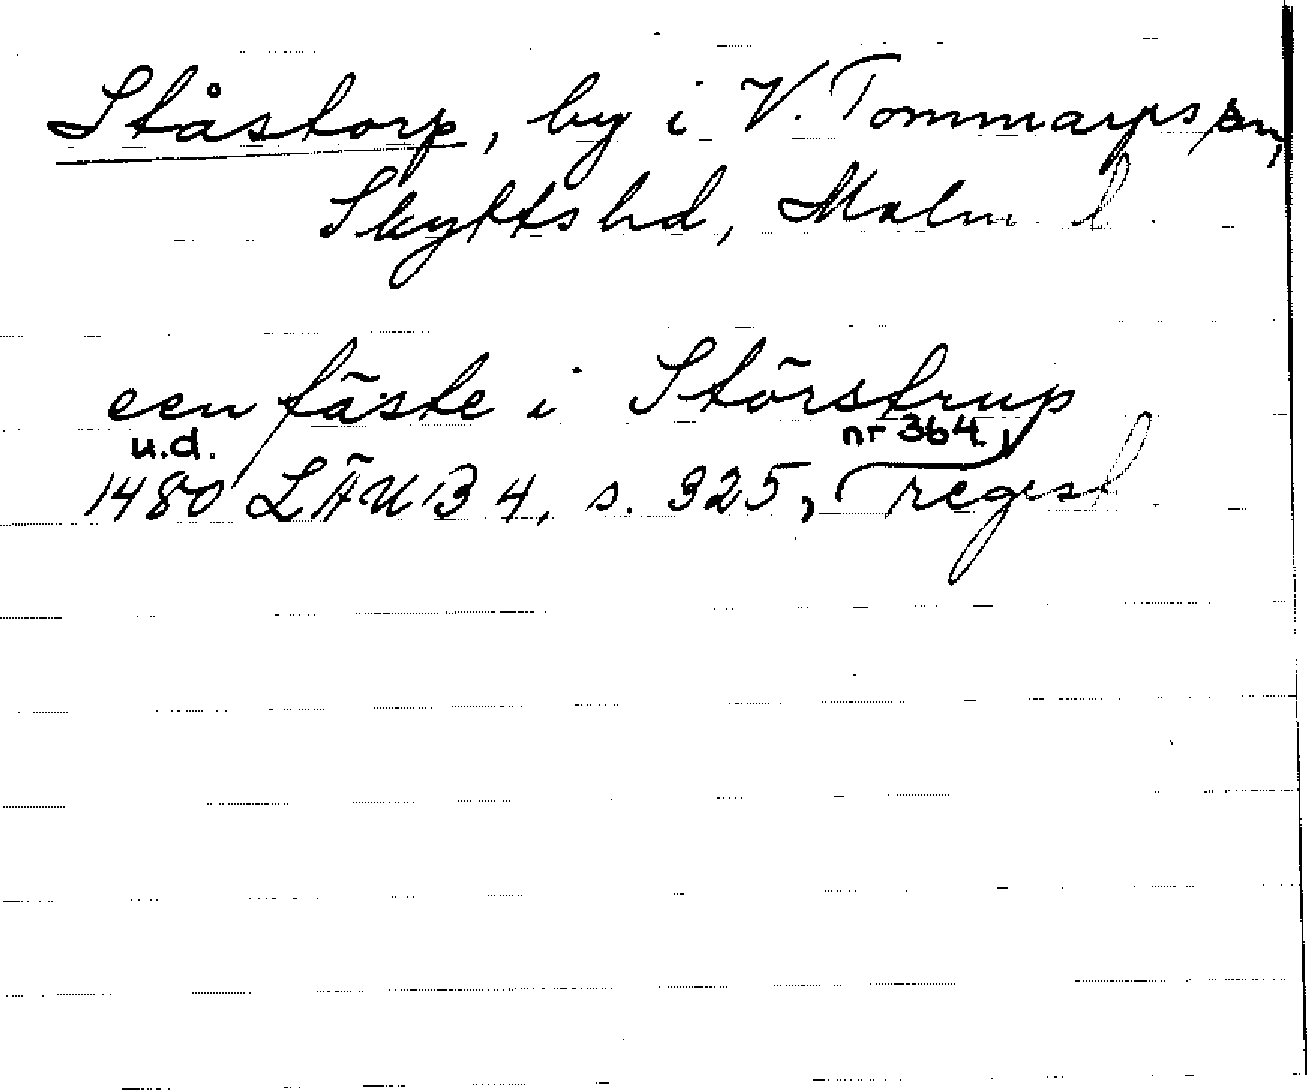 Ståstorp, by i V. Tommarps sn,
Skytts hd, Malm l.
een fäste i Störstrup
u.d. nr 364,
1480 LÄUB 4, s. 325, regest